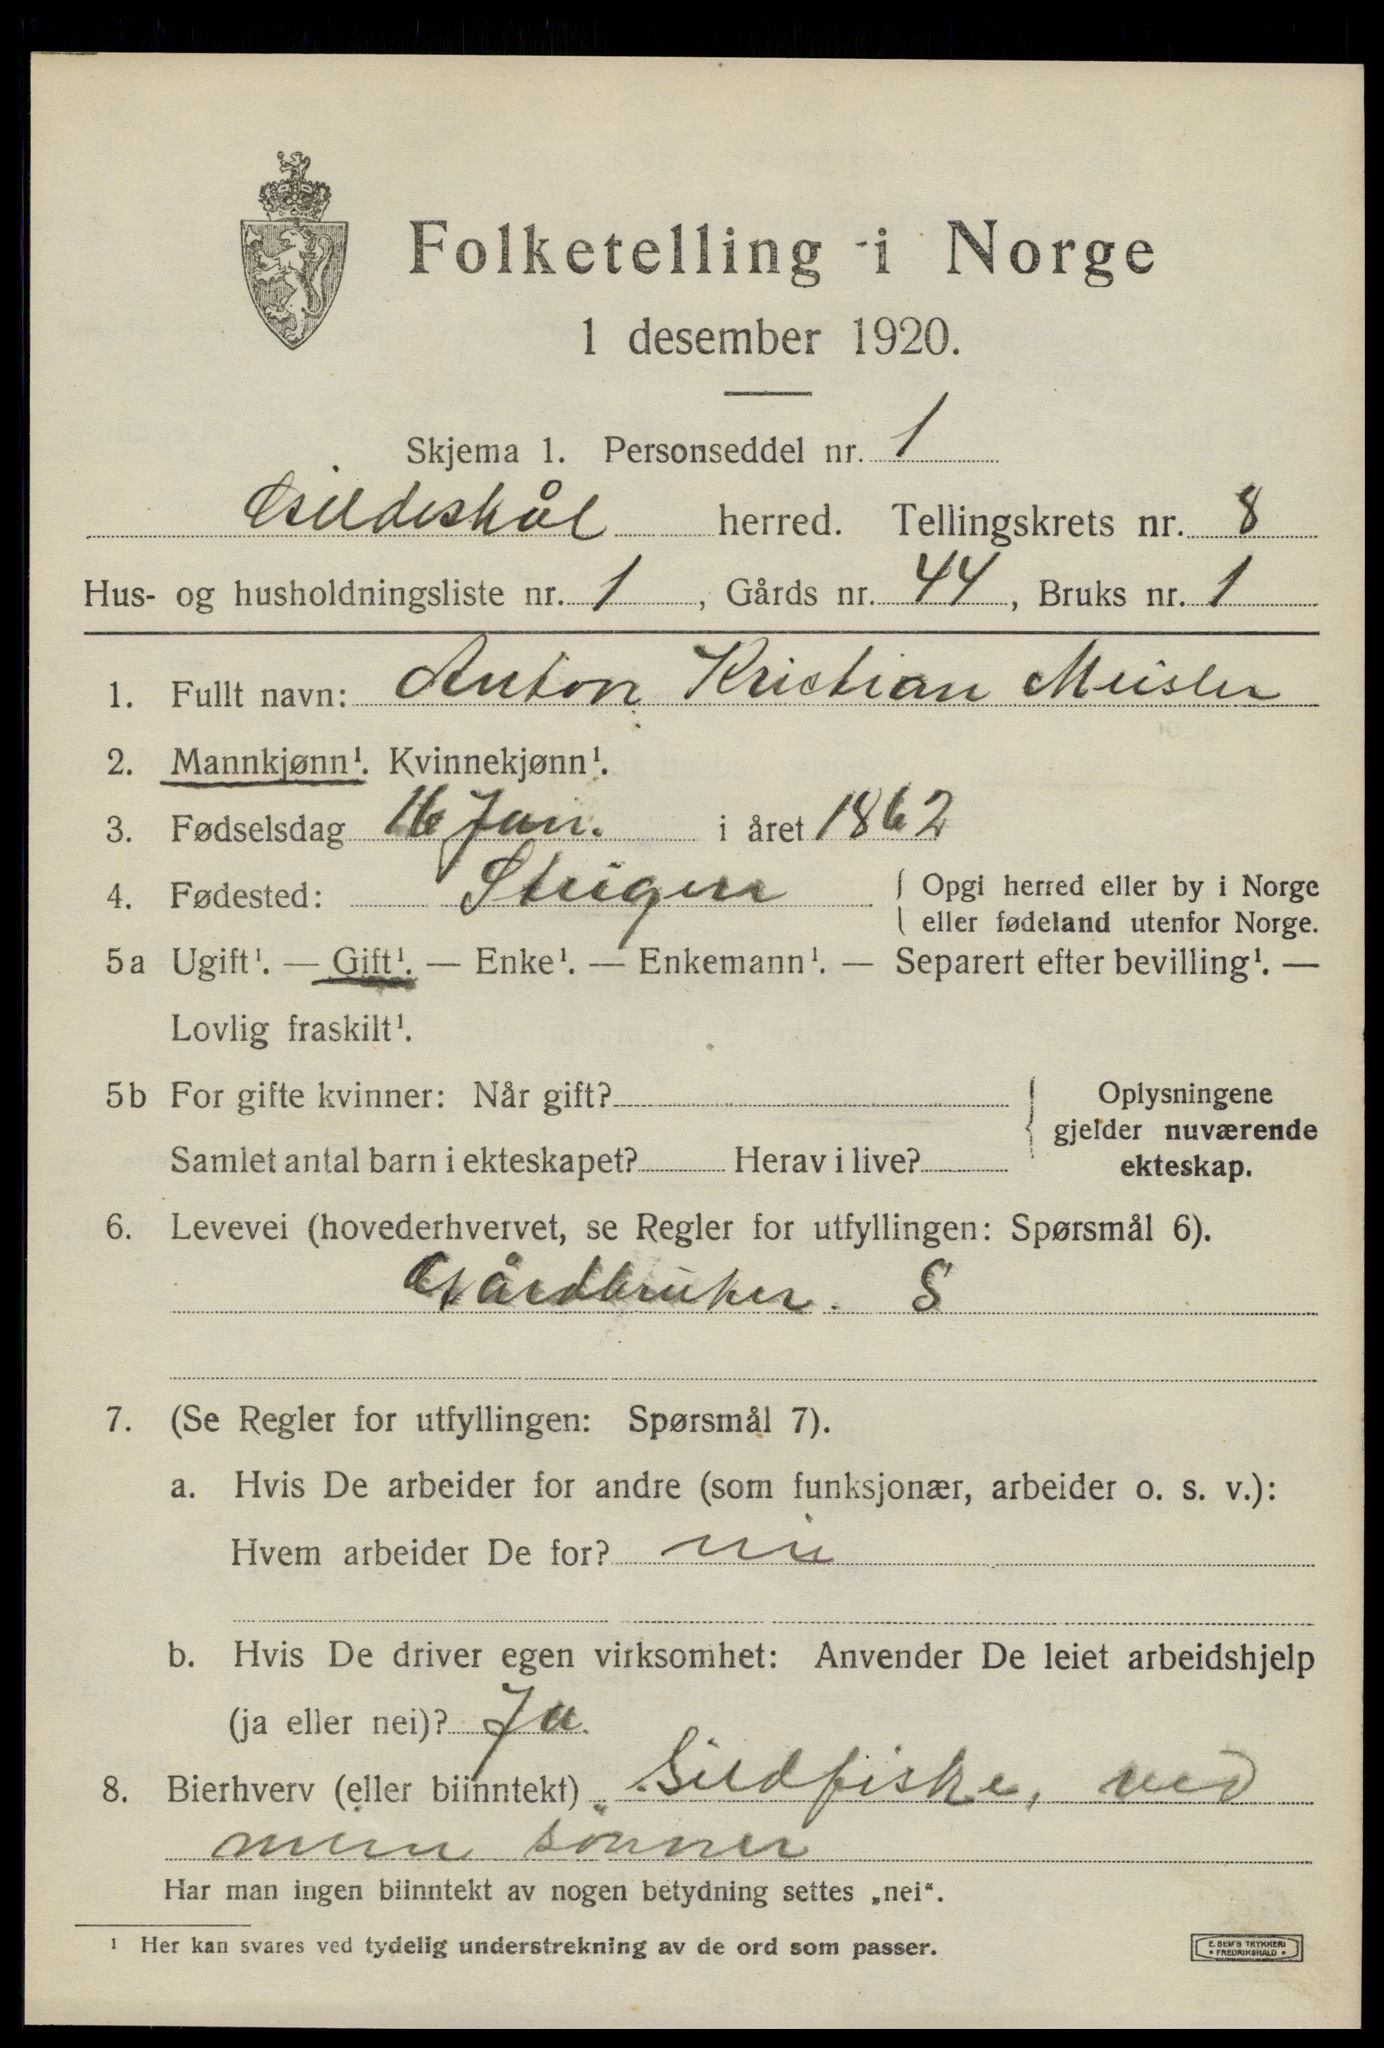 Folketelling i Norge
1 desember 1920.
Skjema 1. Personseddel nr. 1
Gildeskål herred. Tellingskrets nr. 8
Hus- og husholdningsliste nr. 1, Gårds nr. 44, Bruks nr. 1
1. Fullt navn: Anton Kristian Meisler
2. Mannkjønn¹. Kvinnekjønn¹.
3. Fødselsdag 16 Jan. i året 1862
4. Fødested: Steigen { Opgi herred eller by i Norge
eller fødeland utenfor Norge.
5a Ugift¹. — Gift¹. — Enke¹. — Enkemann¹. — Separert efter bevilling¹. —
Lovlig fraskilt¹.
5b For gifte kvinner: Når gift? { Oplysningene
gjelder nuværende
Samlet antal barn i ekteskapet? Herav i live? ekteskap.
6. Levevei (hovederhvervet, se Regler for utfyllingen: Spørsmål 6).
Gårdbruker. S
7. (Se Regler for utfyllingen: Spørsmål 7).
a. Hvis De arbeider for andre (som funksjonær, arbeider o. s. v.):
Hvem arbeider De for? nei
b. Hvis De driver egen virksomhet: Anvender De leiet arbeidshjelp
(ja eller nei)? Ja.
8. Bierhverv (eller biinntekt) Sildfiske, ved
mine sønner
Har man ingen biinntekt av nogen betydning settes „nei“.
¹ Her kan svares ved tydelig understrekning av de ord som passer.
E. SEM'S TRYKKERI
• FREDRIKSHALD •